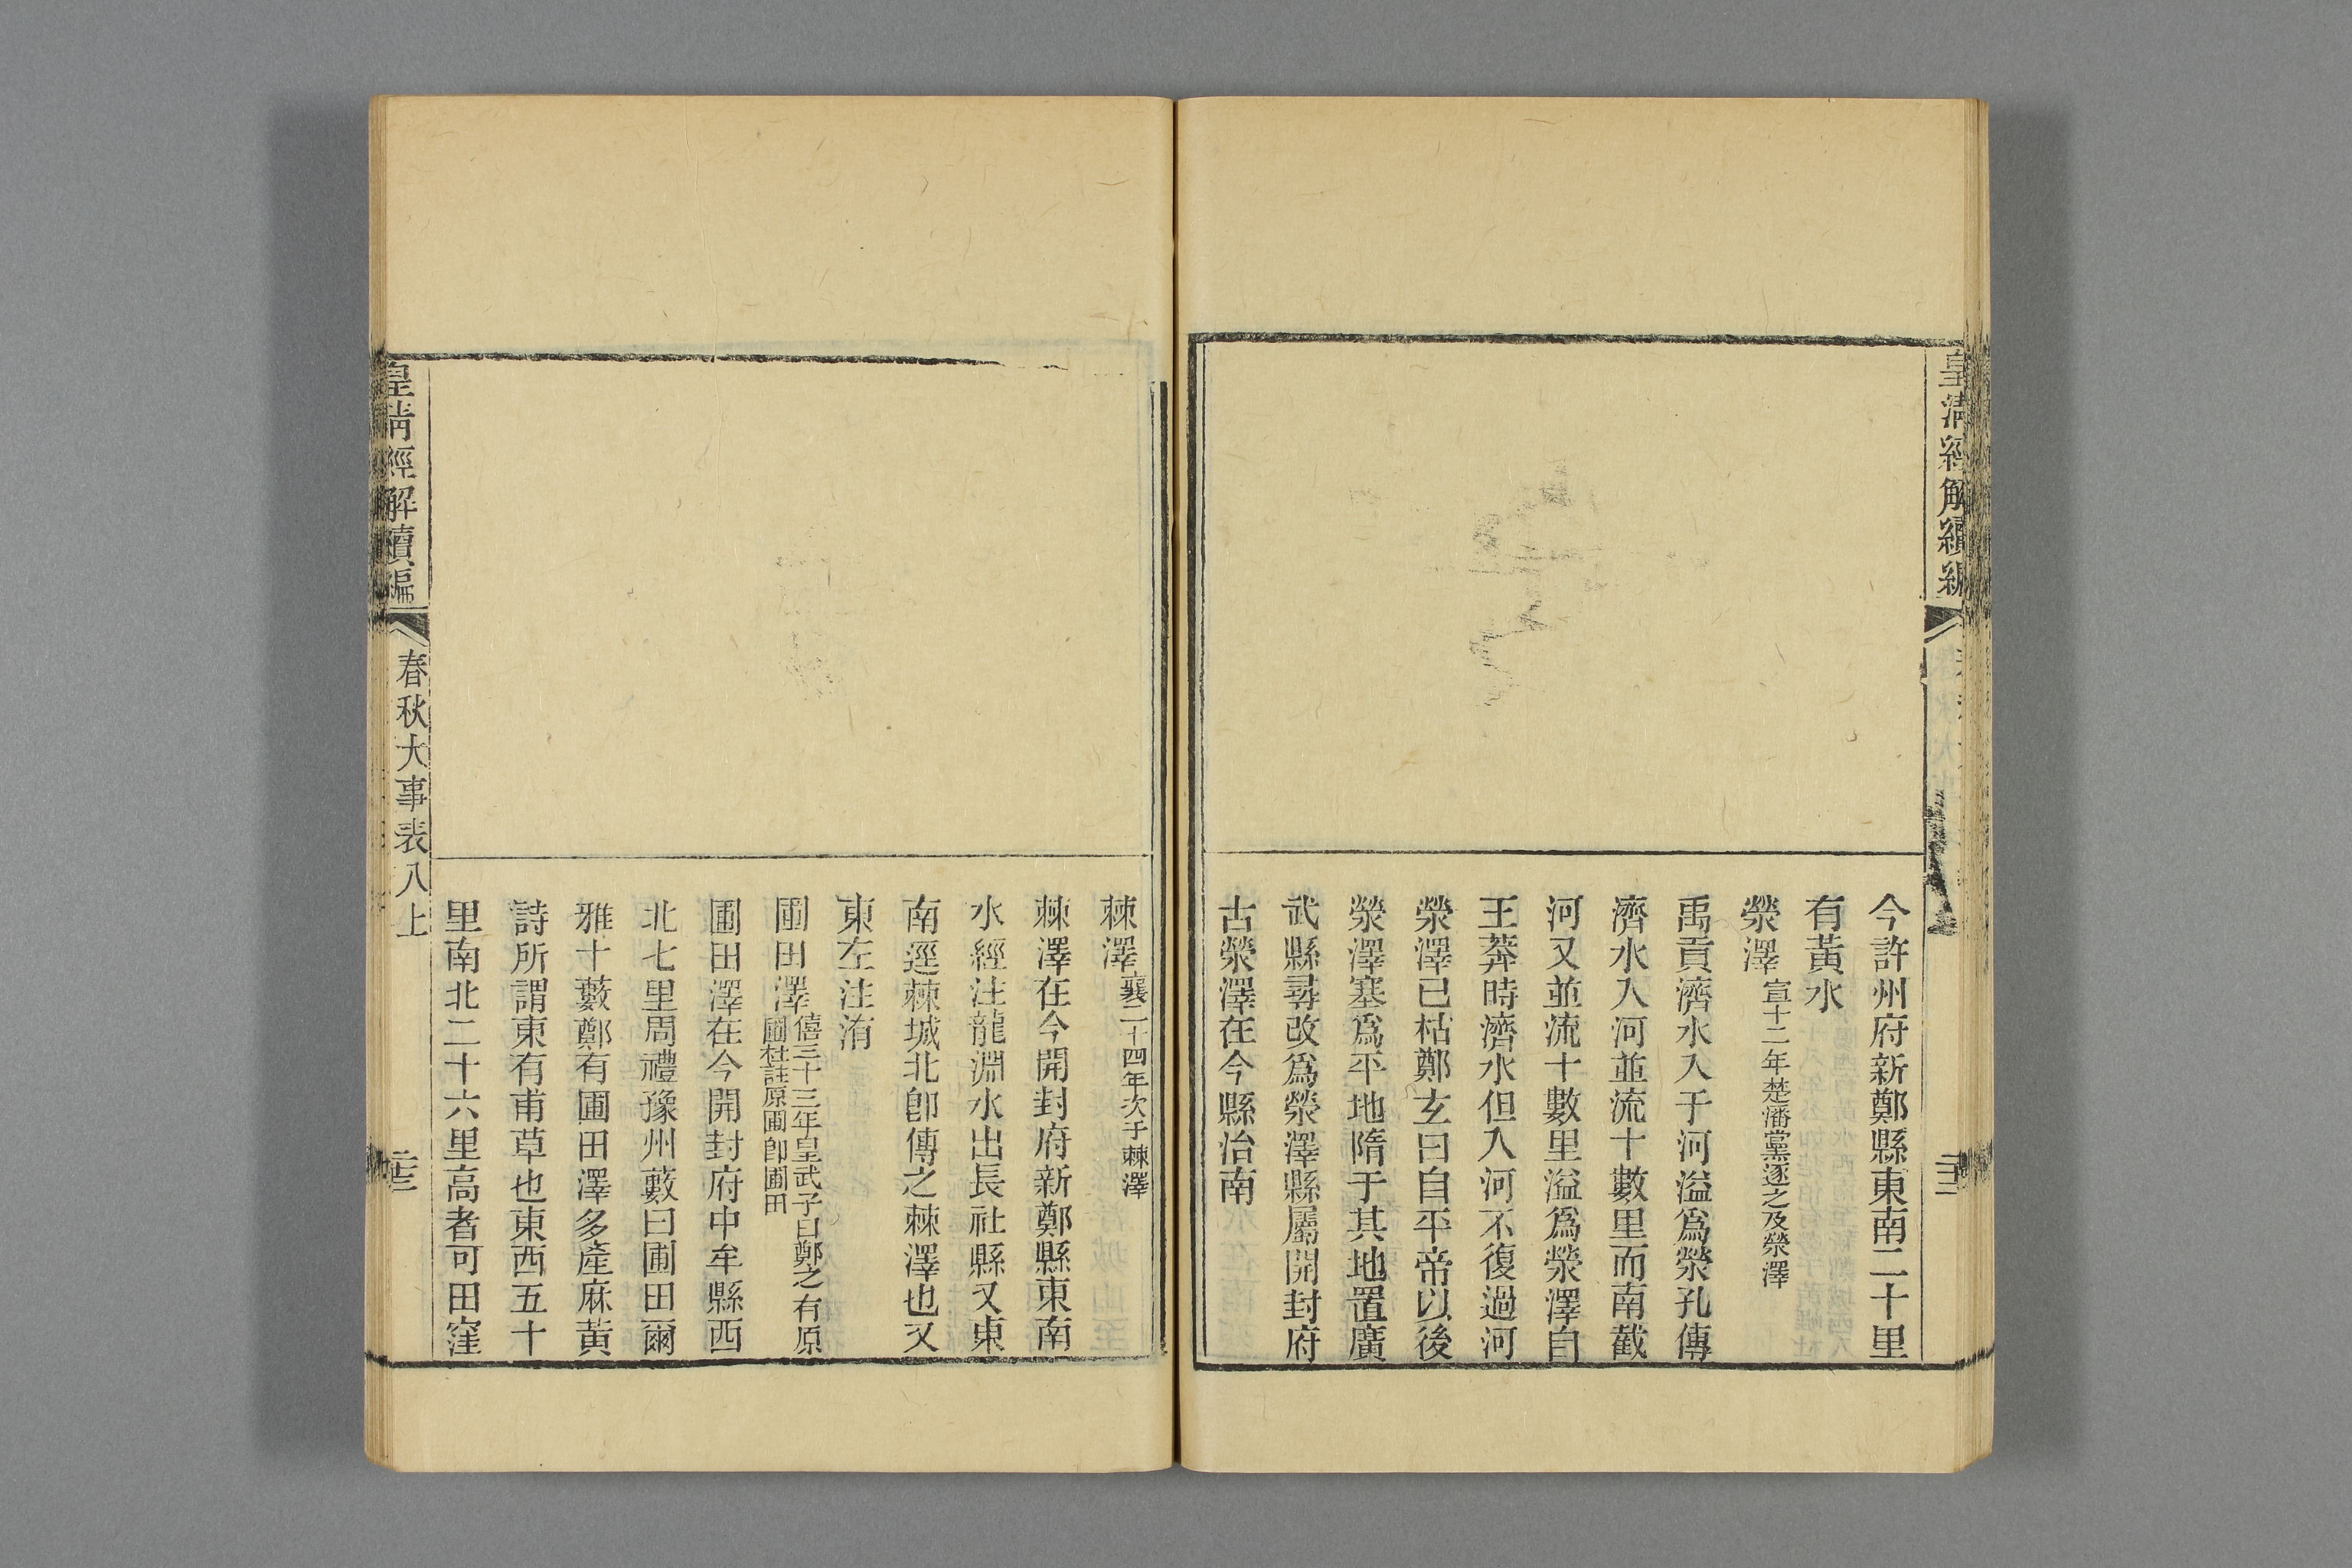 皇清經解續編
今許州府新鄭縣東南二十里
有黃水
滎澤宣十二年楚潘黨逐之及滎澤
禹貢濟水入于河溢爲滎孔傳
濟水入河並流十數里而南截
河又並流十數里溢爲滎澤自
王莽時濟水但入河不復過河
滎澤已枯鄭玄曰自平帝以後
滎澤塞爲平地隋于其地置廣
武縣尋改爲滎澤縣屬開封府
古滎澤在今縣治南
棘澤襄二十四年次于棘澤
棘澤在今開封府新鄭縣東南
水經注龍淵水出長社縣又東
南逕棘城北卽傳之棘澤也又
東左注洧
圃田澤僖三十三年皇武子曰鄭之有原
圃杜註原圃卽圃田
圃田澤在今開封府中牟縣西
北七里周禮豫州藪曰圃田爾
雅十藪鄭有圃田澤多產麻黃
詩所謂東有甫草也東西五十
里南北二十六里高者可田窪
皇清經解續編
春秋大事表八上